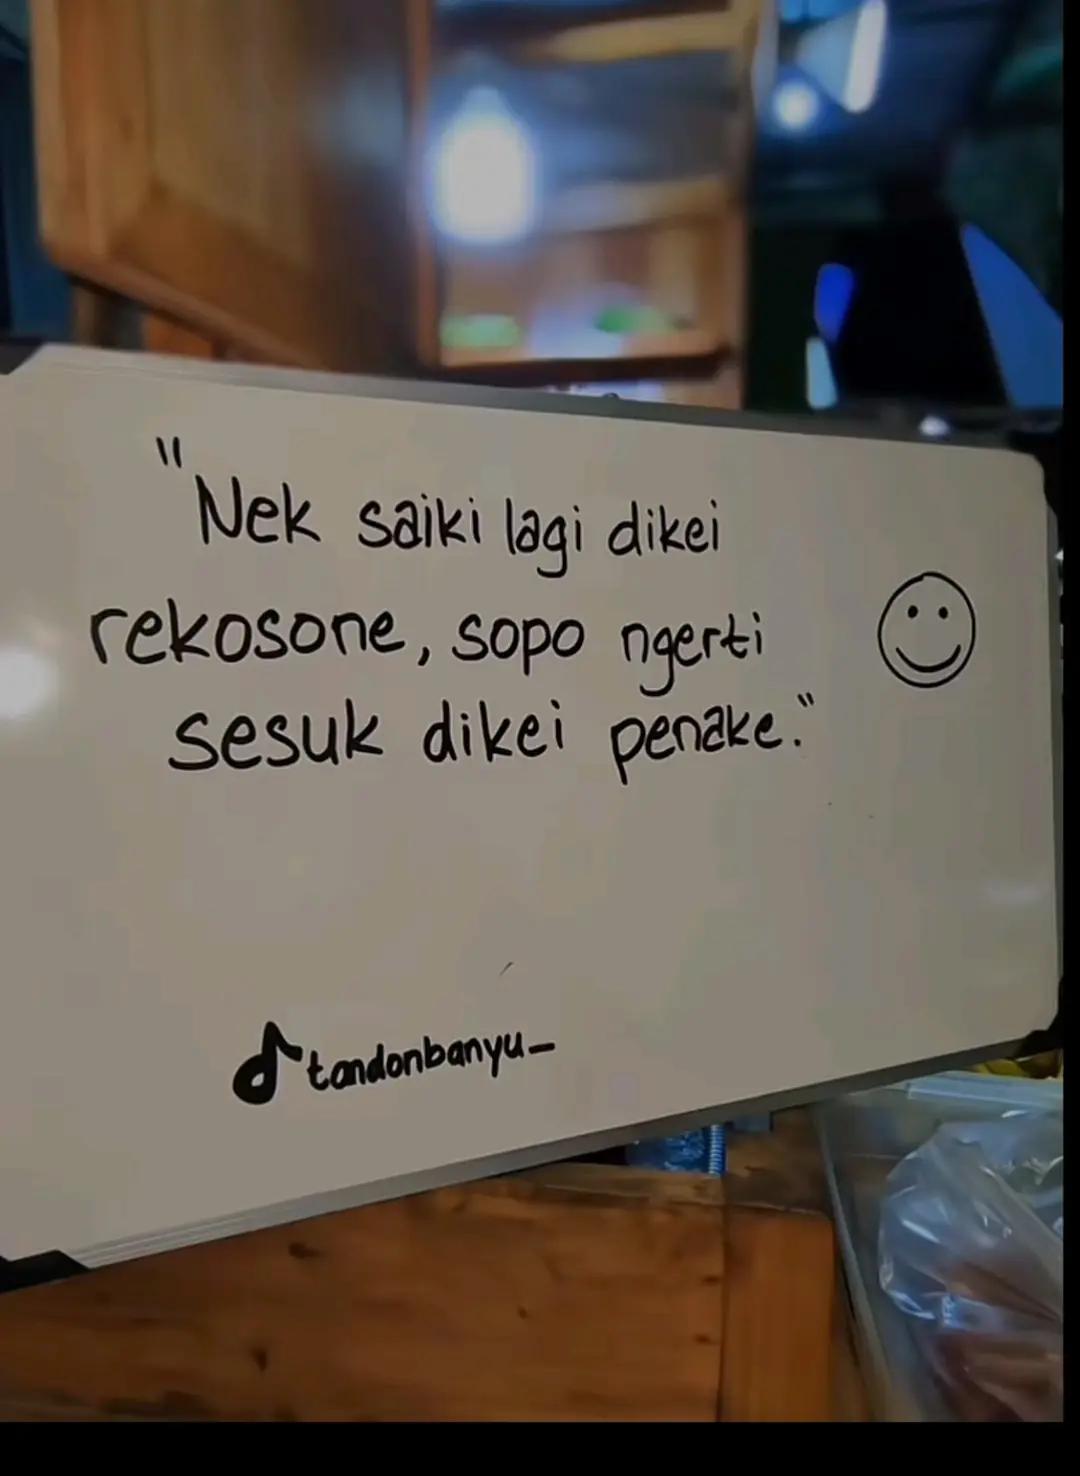 "Nek saiki lagi dikei
rekosone, sopo ngerti
sesuk dikei penake."
tandonbanyu_